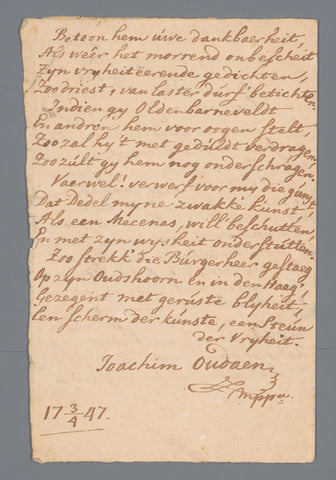 Betoon hem úwe dankbaerheit,
Als wêer het morrend onbescheit
Zyn vryheiteerende gedichten,
Zoo driest, van laster dúrf betichten.
Indien gy Oldenbarneveldt
En andren hem voor oogen stelt,
Zoo zal hy 't met gedúldt verdragen
Zoo zúlt gy hem nog onderschragen.
Vaer wel! verwerf voor my die gúnst,
Dat Dedel myne zwakke kúnst,
Als een Mecenas, will' beschutten,
En met zyn wysheit onderstútten.
Zoo strekk' die Búrgerheer gestaeg
Op zyn Oudshoorn en in den Haag
Gezegent met gerúste blyheit,
Een scherm der kúnste, een Steun
der Vryheit.
Joachim Oudaen
mppa
17 3/4 47.